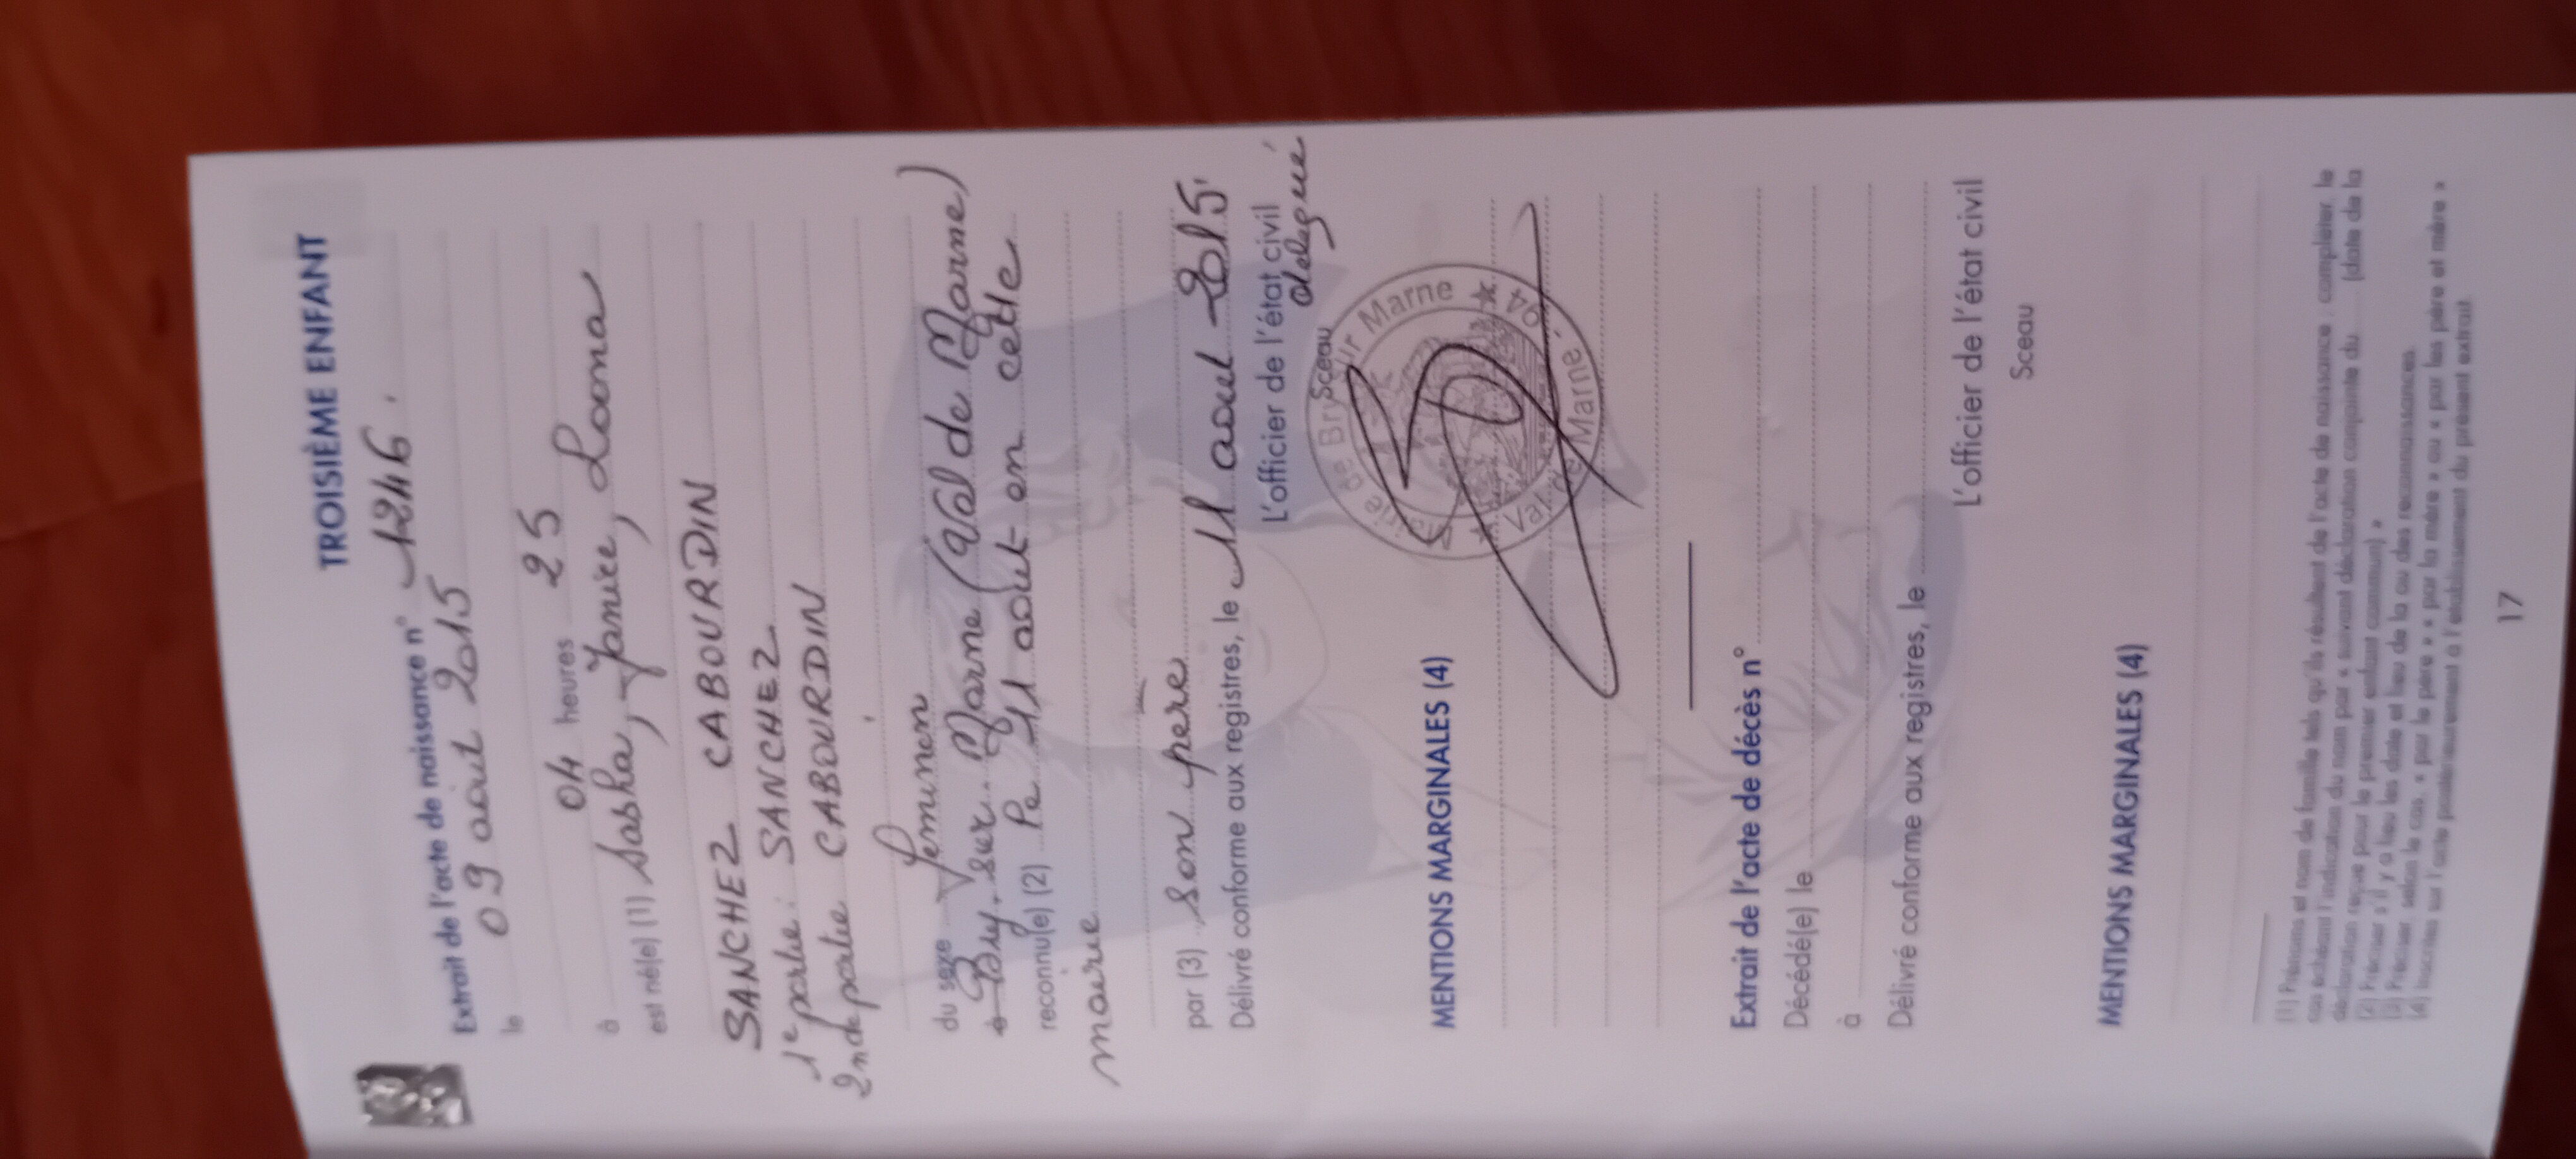 TROISIÈME ENFANT
Extrait de l'acte de naissance n° 1246.
le 09 août 2015
04 heures 25
à
est né(e) (1) Sasha, Janice, Looma
SANCHEZ CABOURDIN
1e partie : SANCHEZ
2nde partie CABOURDIN
du sexe féminin
à Bry-sur-Marne (Val de Marne)
reconnu(e) (2) le 11 août en cette
mairie
par (3) son père
Délivré conforme aux registres, le 11 août 2015
L'officier de l'état civil
délégué
Sceau
Mairie de Bry sur Marne
Val de Marne
94
MENTIONS MARGINALES (4)
Extrait de l'acte de décès n°
Décédé(e) le
à
Délivré conforme aux registres, le
L'officier de l'état civil
Sceau
MENTIONS MARGINALES (4)
(1) Prénoms et nom de famille tels qu'ils résultent de l'acte de naissance ; compléter, le
cas échéant l'indication du nom par « suivant déclaration conjointe du ..... (date de la
déclaration reçue pour le premier enfant commun) »
(2) Préciser s'il y a lieu les date et lieu de la ou des reconnaissances.
(3) Préciser, selon le cas, « par le père » « par la mère » ou « par les père et mère »
(4) Inscrites sur l'acte postérieurement à l'établissement du présent extrait.
17